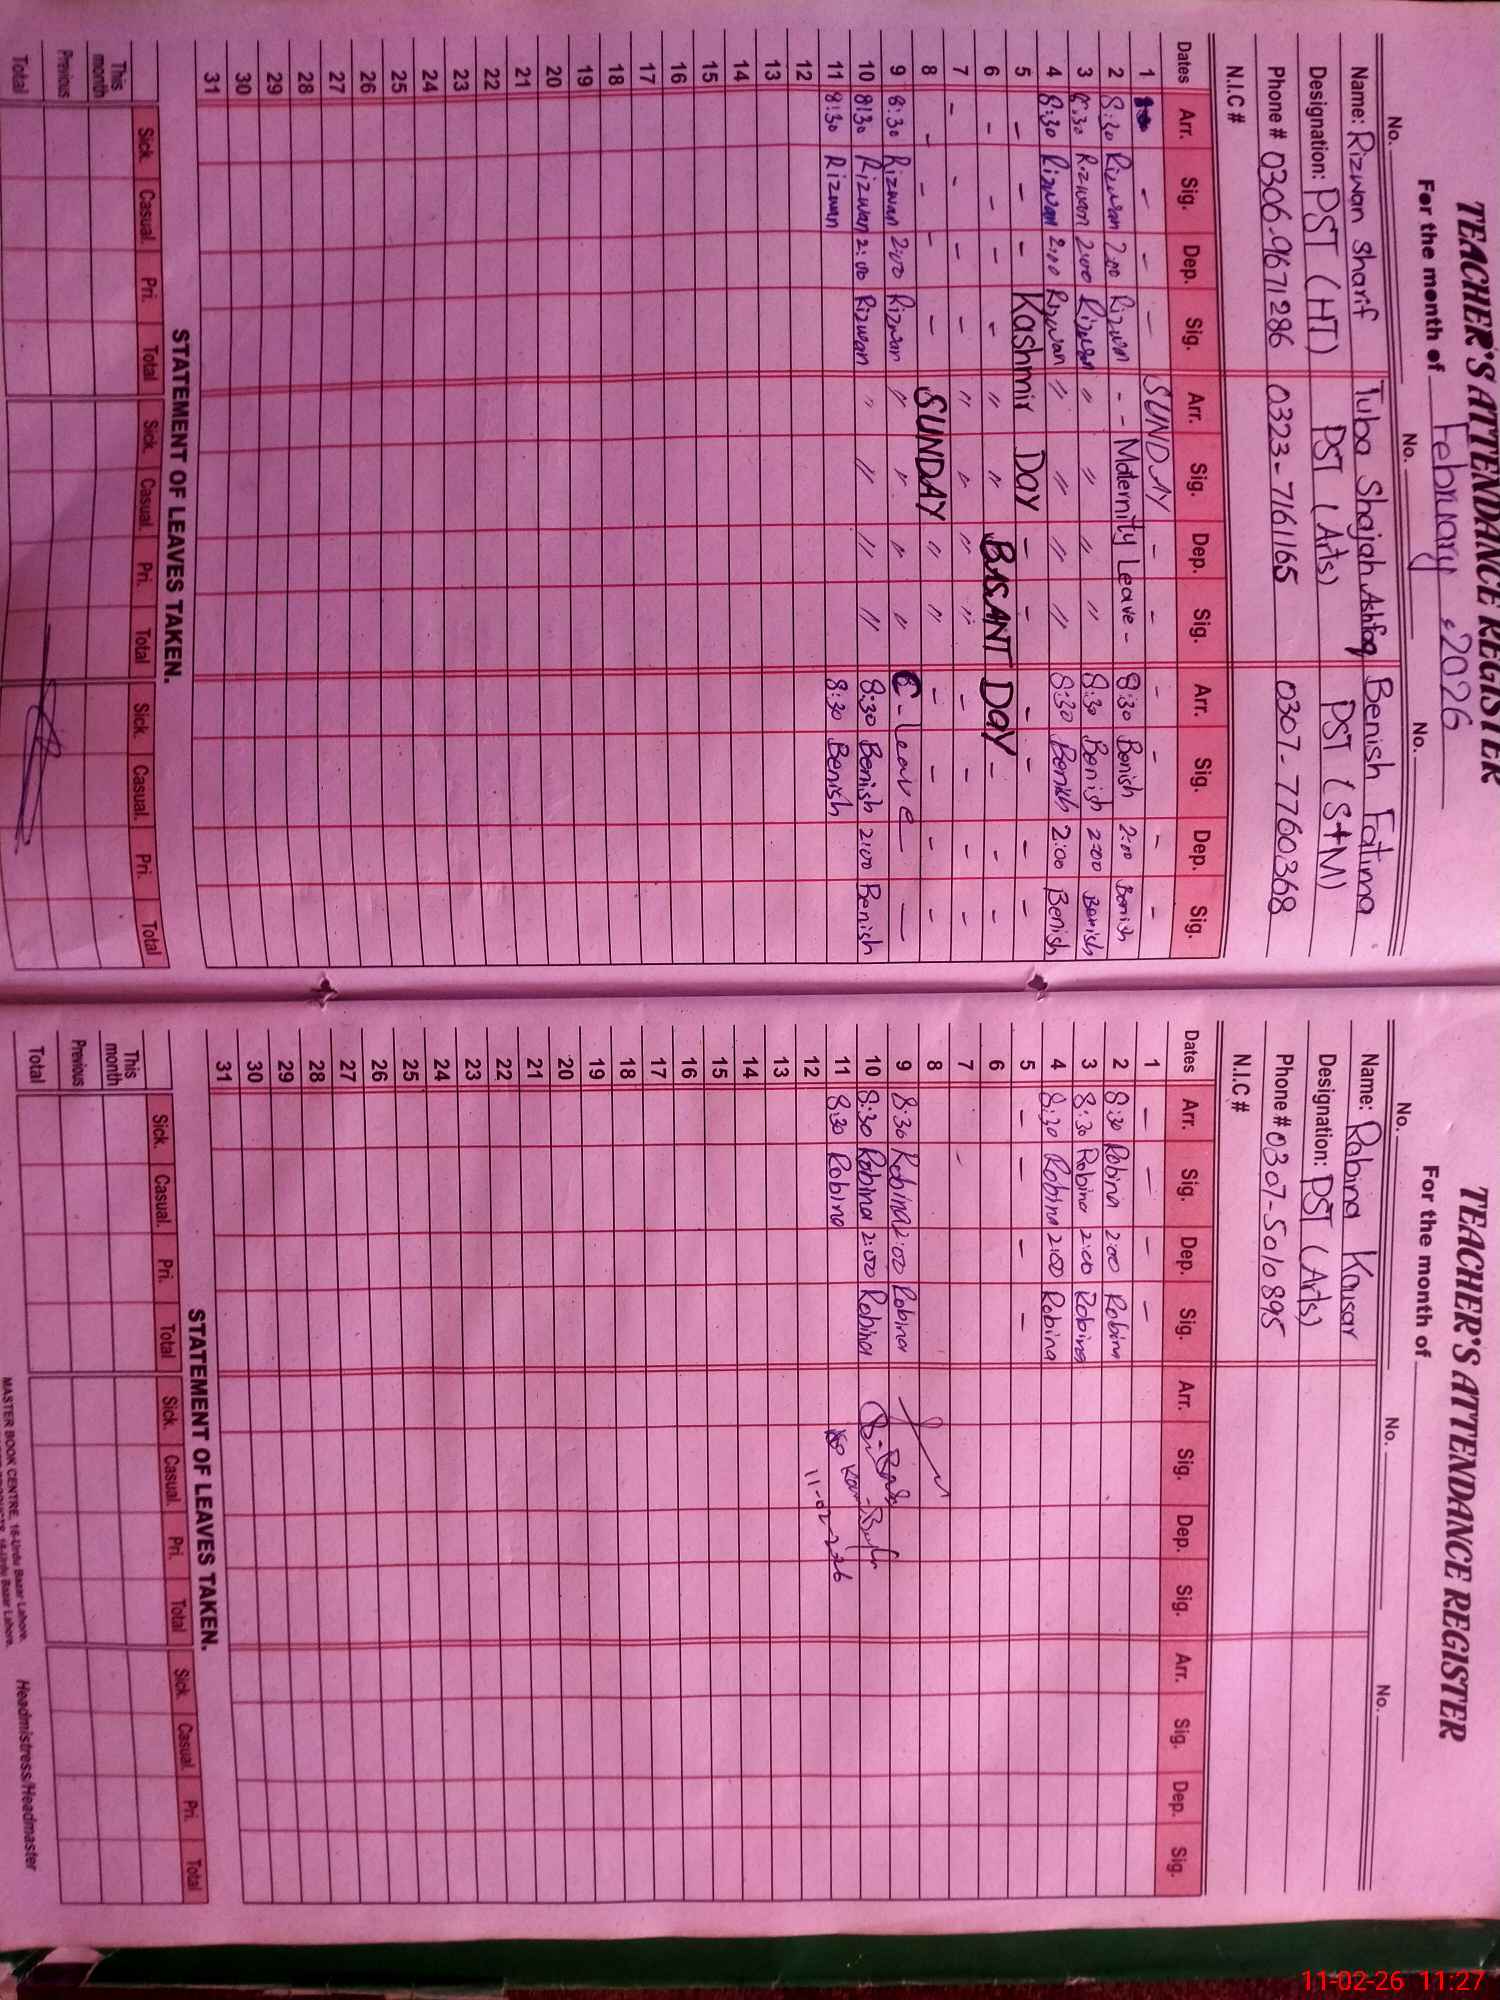 TEACHER'S ATTENDANCE REGISTER
For the month of February, 2026
No. No. No.
Name: Rizwan Sharif Tuba Shajah Ashfaq Benish Fatima
Designation: PST (HT) PST (Arts) PST (S+M)
Phone # 0306-9671286 0323-7161165 0307-7760368
N.I.C #
Dates Arr. Sig. Dep. Sig. Arr. Sig. Dep. Sig. Arr. Sig. Dep. Sig.
1 - - - SUNDAY - - - - - -
2 8:30 Rizwan 2:00 Rizwan - - Maternity Leave - 8:30 Benish 2:00 Benish
3 8:30 Rizwan 2:00 Rizwan " " " " 8:30 Benish 2:00 Benish
4 8:30 Rizwan 2:00 Rizwan " " " " 8:30 Benish 2:00 Benish
5 - - - Kashmir Day - - - - - -
6 - - - - " " BASANT DAY - - -
7 - - - - " " " " - - - -
8 - - - - SUNDAY " " - - - -
9 8:30 Rizwan 2:00 Rizwan " " " " C-Leave -
10 8:30 Rizwan 2:00 Rizwan " " " " 8:30 Benish 2:00 Benish
11 8:30 Rizwan 8:30 Benish
12
13
14
15
16
17
18
19
20
21
22
23
24
25
26
27
28
29
30
31
STATEMENT OF LEAVES TAKEN.
Sick. Casual. Pri. Total Sick. Casual. Pri. Total Sick. Casual. Pri. Total
This month
Previous
Total
TEACHER'S ATTENDANCE REGISTER
For the month of
No. No. No.
Name: Robina Kausar
Designation: PST (Arts)
Phone # 0307-5010895
N.I.C #
Dates Arr. Sig. Dep. Sig. Arr. Sig. Dep. Sig. Arr. Sig. Dep. Sig.
1 - - - -
2 8:30 Robina 2:00 Robina
3 8:30 Robina 2:00 Robina
4 8:30 Robina 2:00 Robina
5 - - - -
6
7 -
8
9 8:30 Robina 2:00 Robina
10 8:30 Robina 2:00 Robina
11 8:30 Robina
12
11-02-2026
13
14
15
16
17
18
19
20
21
22
23
24
25
26
27
28
29
30
31
STATEMENT OF LEAVES TAKEN.
Sick. Casual. Pri. Total Sick. Casual. Pri. Total Sick. Casual. Pri. Total
This month
Previous
Total
MASTER BOOK CENTRE, 16-Urdu Bazar Lahore.
Headmistress/Headmaster
11-02-26 11:27